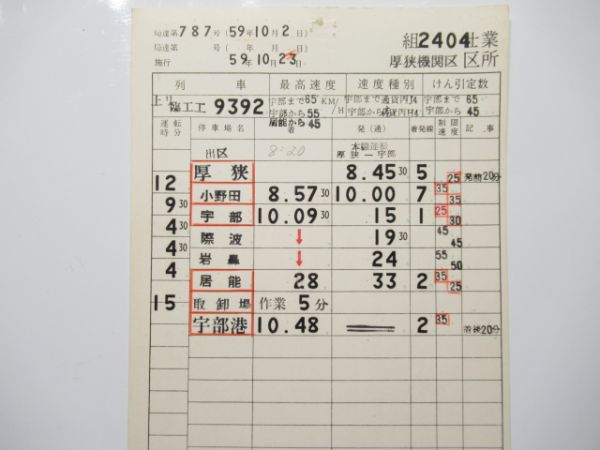 局達第787号(59年10月2日)
局達第 号( 年 月 日)
施行 59年10月23日
組2404仕業
厚狭機関区 区所
列 車 最高速度 速度種別 けん引定数
上り 臨工工 9392 宇部まで65KM/H 宇部から55 居能から45 宇部まで通貨丙 宇部から 貨丙 宇部まで65 宇部から45
運転時分 停車場名 着 発(通) 着発線 制限速度 記事
出区 8:20 本線運転 厚狭—宇部
厚狭 8.45 30 5 25 発前20分
12 小野田 8.57 30 10.00 30 7 35
9 30 宇部 10.09 30 15 1 25 30
4 30 際波 ↓ 19 30 45 45
4 30 岩鼻 ↓ 24 55 50
4 居能 28 33 2 35 25
15 取卸場 作業 5分
宇部港 10.48 2 35 着後20分